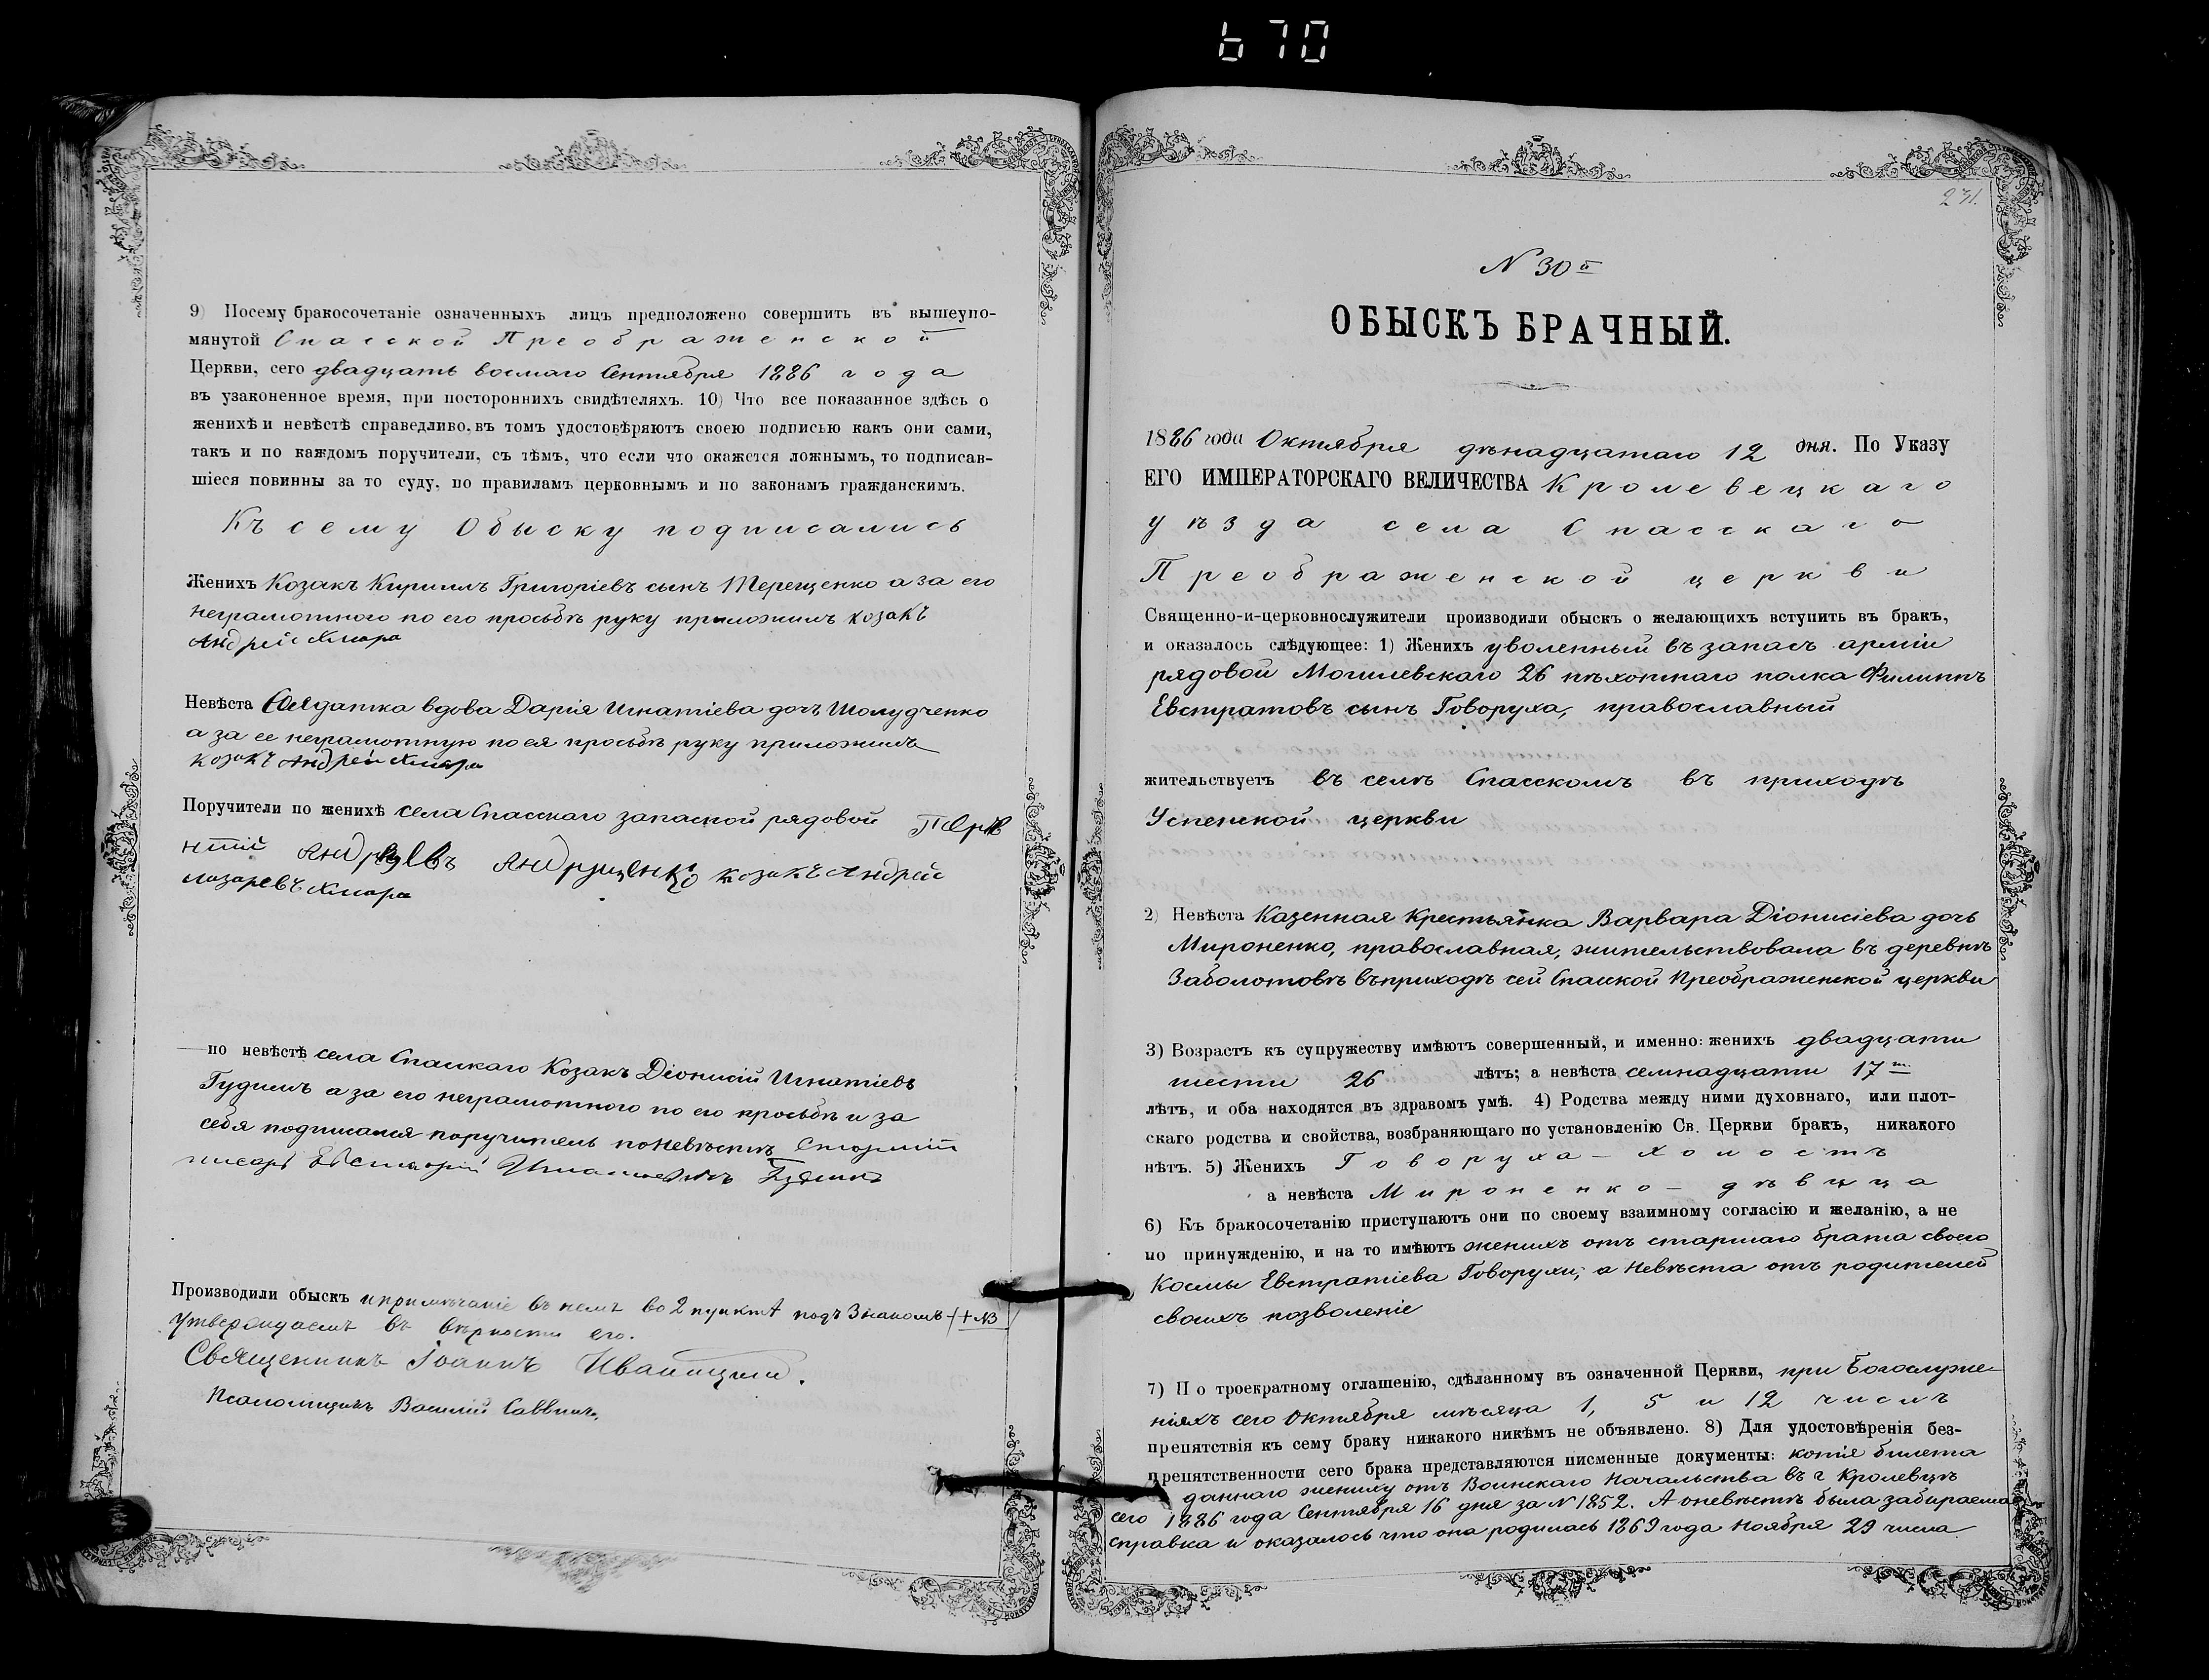 670
9) Посему бракосочетаніе означенныхъ лицъ предположено совершить въ вышеупо-
мянутой Спасской Преображенской
Церкви, сего двадцать восмаго Сентября 1886 года
въ узаконенное время, при постороннихъ свидѣтеляхъ. 10) Что все показанное здѣсь о
женихѣ и невѣстѣ справедливо, въ томъ удостовѣряютъ своею подписью какъ они сами,
такъ и по каждомъ поручители, съ тѣмъ, что если что окажется ложнымъ, то подписав-
шіеся повинны за то суду, по правиламъ церковнымъ и по законамъ гражданскимъ.
Къ сему Обыску подписались
Женихъ Козакъ Кириллъ Григоріевъ сынъ Терещенко а за его
неграмотного по его просьбѣ руку приложилъ козакъ
Андрей Хмара
Невѣста Солдатка вдова Дарія Игнатіева дочь Шолудченко
а за ее неграмотную по ея просьбѣ руку приложилъ
козакъ Андрей Хмара
Поручители по женихѣ села Спасскаго запасной рядовой
Андрущенко козакъ Андрей
лазаревъ Хмара
по невѣстѣ села Спаскаго Козакъ Діонисій Игнатіевъ
Гудимъ а за его неграмотного по его просьбѣ и за
себя подписался поручитель по невѣстѣ
писарь
Производили обыскъ и примѣчаніе въ немъ во 2 пунктѣ подъ Знакомъ + NB
утверждаемъ въ вѣрности его.
Священникъ Іоаннъ
Псаломщикъ Василій Саввичъ
231.
N 30й
ОБЫСКЪ БРАЧНЫЙ.
1886 года Октября двѣнадцатаго 12 дня. По Указу
ЕГО ИМПЕРАТОРСКАГО ВЕЛИЧЕСТВА Кролевецкаго
уѣзда села Спасскаго
Преображенской церкви
Священно-и-церковнослужители производили обыскъ о желающихъ вступить въ бракъ,
и оказалось слѣдующее: 1) Женихъ уволенный въ запасъ арміи
рядовой Могилевскаго 26 пѣхотнаго полка Филиппъ
Евстратовъ сынъ Говоруха, православный
жительствуетъ въ селѣ Спасскомъ въ приходѣ
Успенской церкви
2) Невѣста Казенная Крестьянка Варвара Діонисіева дочь
Мироненко, православная, жительствовала въ деревнѣ
Заболотовѣ въ приходѣ сей Спаской Преображенской церкви
3) Возрастъ къ супружеству имѣютъ совершенный, и именно: женихъ двадцати
шести 26 лѣтъ; а невѣста семнадцати 17ти
лѣтъ, и оба находятся въ здравомъ умѣ. 4) Родства между ними духовнаго, или плот-
скаго родства и свойства, возбраняющаго по установленію Св. Церкви бракъ, никакого
нѣтъ. 5) Женихъ Говоруха - холостъ
а невѣста Мироненко - дѣвица
6) Къ бракосочетанію приступаютъ они по своему взаимному согласію и желанію, а не
по принужденію, и на то имѣютъ женихъ отъ старшаго брата своего
Космы Евстратіева Говорухи; а Невѣста отъ родителей
своихъ позволеніе
7) По троекратному оглашенію, сдѣланному въ означенной Церкви, при Богослуже-
ніяхъ сего Октября мѣсяца 1, 5 и 12 числъ
препятствія къ сему браку никакого никѣмъ не объявлено. 8) Для удостовѣренія без-
препятственности сего брака представляются писменные документы: копія билета
даннаго жениху отъ Воинскаго Начальства въ г Кролевцѣ
сего 1886 года Сентября 16 дня за N 1852. А о невѣстѣ была забираема
справка и оказалось что она родилась 1869 года Ноября 29 числа